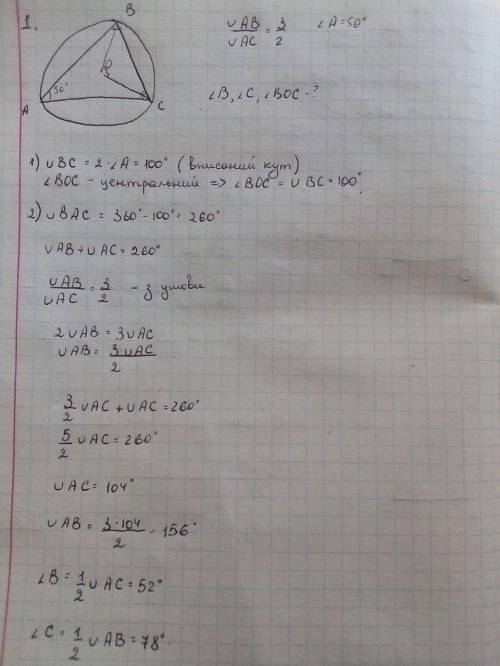 1.
B
O
50°
A
C
∪AB/∪AC = 3/2 ∠A=50°
∠B, ∠C, ∠BOC - ?
1) ∪BC = 2·∠A = 100° (вписаний кут)
∠BOC - центральний => ∠BOC = ∪BC = 100°
2) ∪BAC = 360° - 100° = 260°
∪AB + ∪AC = 260°
∪AB/∪AC = 3/2 - з умови
2∪AB = 3∪AC
∪AB = 3∪AC/2
3/2 ∪AC + ∪AC = 260°
5/2 ∪AC = 260°
∪AC = 104°
∪AB = 3·104/2 = 156°
∠B = 1/2 ∪AC = 52°
∠C = 1/2 ∪AB = 78°.